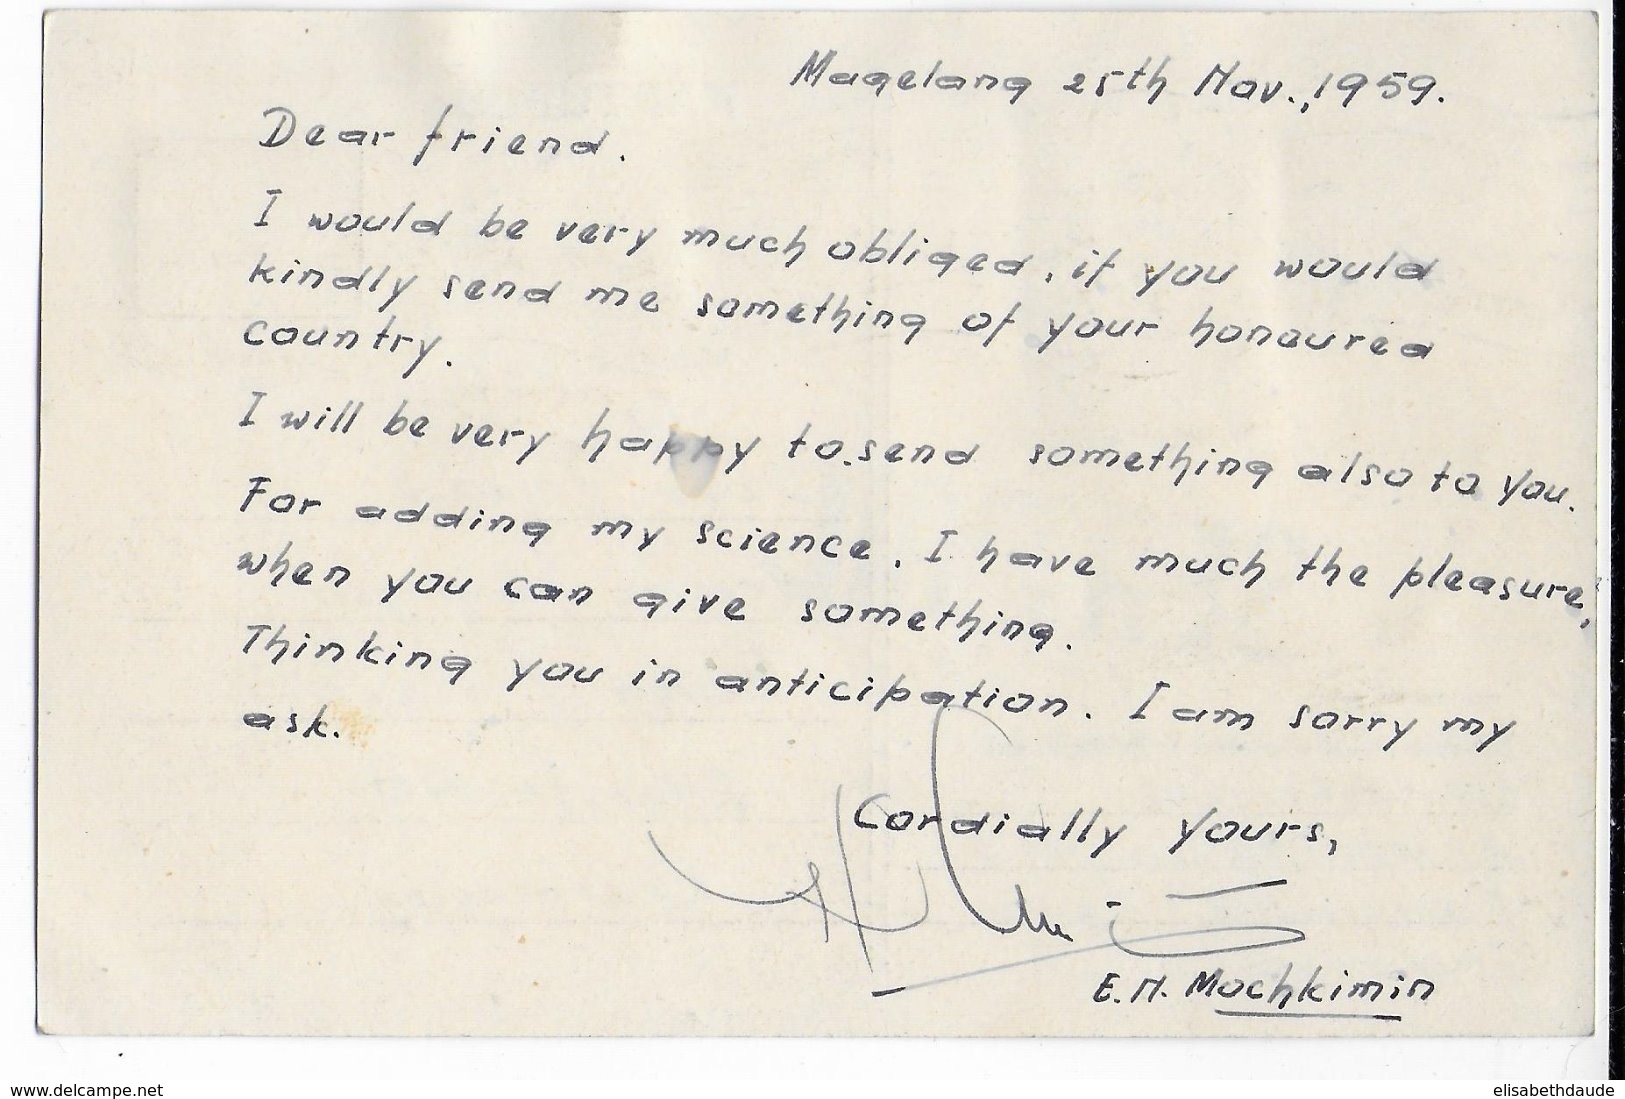 Magelang 25th Nov., 1959.
Dear friend.
I would be very much obliged, if you would
kindly send me something of your honoured
country.
I will be very happy to send something also to you.
For adding my science, I have much the pleasure,
when you can give something.
Thinking you in anticipation. I am sorry my
ask.
Cordially yours,
E.N. Mochkimin
www.delcampe.net
elisabethdaude